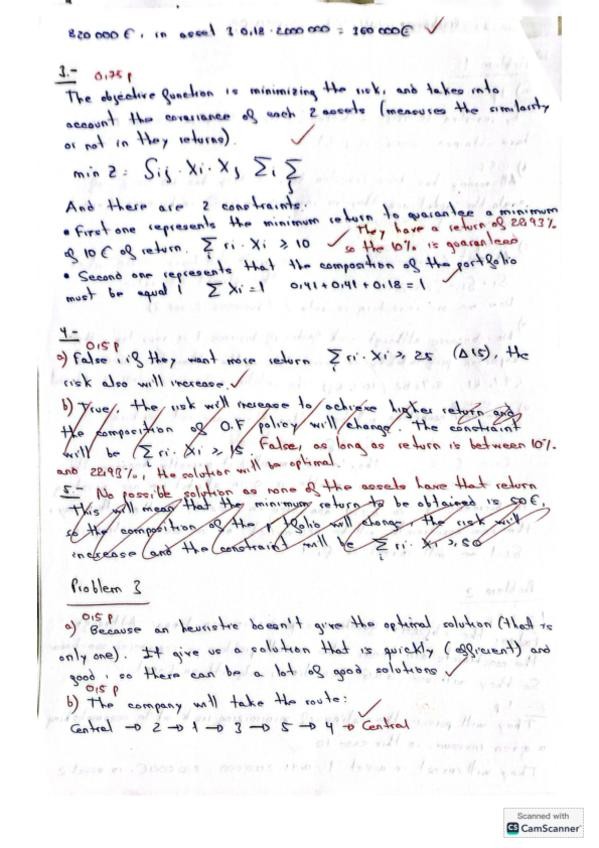 820 000 €, in asset 3 0,18 · 2000 000 = 360 000€ ✓
3.- 0,75 p
The objective function is minimizing the risk, and takes into
account the covariance of each 2 assets (measures the similarity
or not in they returns). ✓
min z = Sij · Xi · Xj Σi Σj
And there are 2 constraints.
• First one represents the minimum return to guarantee a minimum
of 10€ of return. Σi ri · Xi ≥ 10 ✓ They have a return of 28.93%
so the 10% is guaranteed
• Second one represents that the composition of the portfolio
must be equal 1 Σ Xi = 1 0,41 + 0,41 + 0,18 = 1 ✓
4.-
0,5 p
a) False, if they want more return Σi ri · Xi ≥ 25 (Δ15), the
risk also will increase. ✓
b) True, the risk will increase to achieve higher return and
the composition of O.F policy will change. The constraint
will be Σi ri · Xi ≥ 15. False, as long as return is between 10%
and 28.93%, the solution will be optimal.
5.- No possible solution as none of the assets have that return
This will mean that the minimum return to be obtained is 50€,
so the composition of the portfolio will change, the risk will
increase and the constraint will be Σi ri · Xi ≥ 50
Problem 3
0,5 p
a) Because an heuristic doesn't give the optimal solution (that is
only one). It give us a solution that is quickly (efficient) and
good, so there can be a lot of good solutions ✓
0,5 p
b) The company will take the route: ✓
Central → 2 → 1 → 3 → 5 → 4 → Central
Scanned with
CS CamScanner